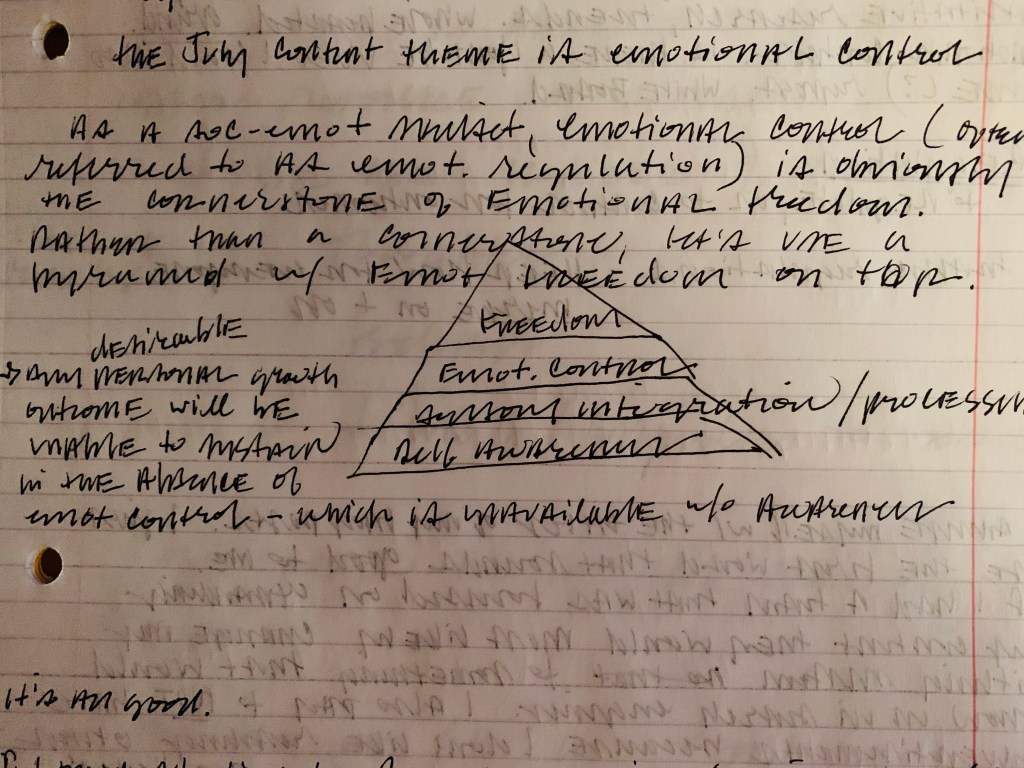 the July content theme is emotional control
As a soc-emot subject, emotional control (often
referred to as emot. regulation) is obviously
the cornerstone of Emotional freedom.
Rather than a cornerstone, let's use a
pyramid w/ Emot freedom on top.
Freedom
Emot. Control
integration / processing
Self Awareness
desirable
→ Any personal growth
outcome will be
unable to sustain
in the absence of
emot control - which is unavailable w/o Awareness
it's all good.